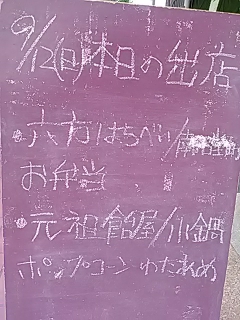 9/12(日)本日の出店
・六方はちべい/
お弁当
・元祖飴屋/小鍋
ポップコーン わたあめ